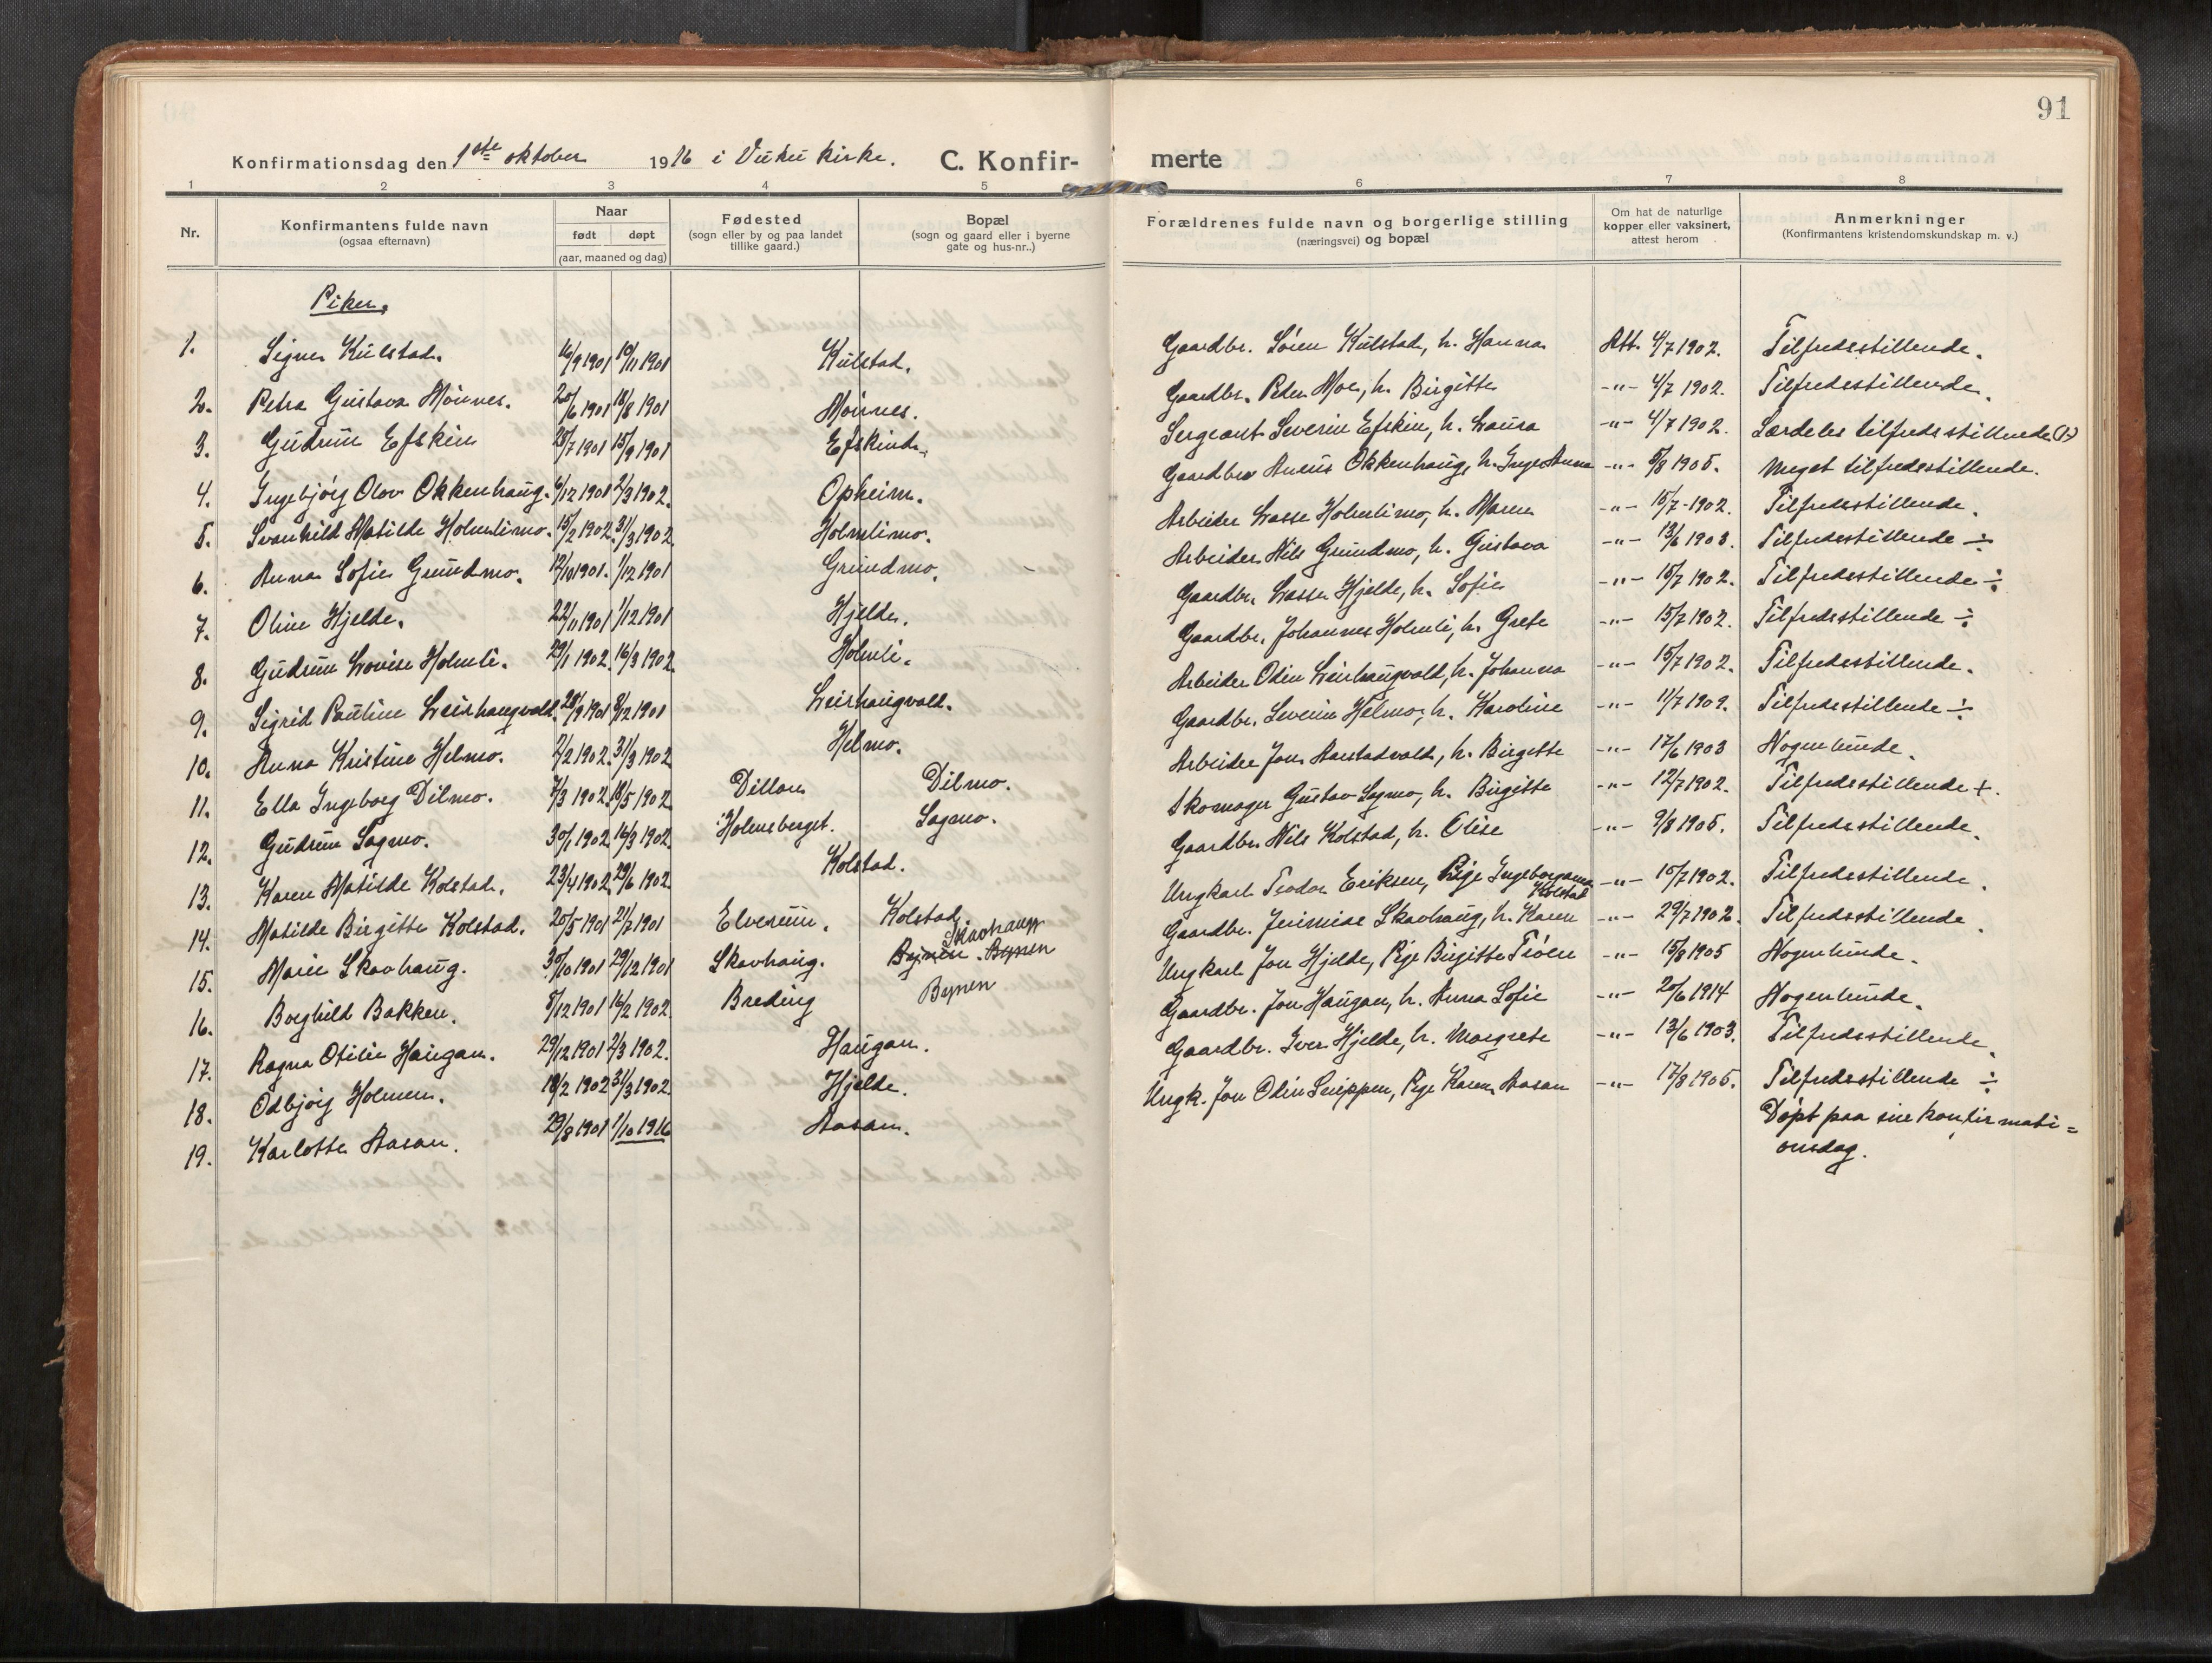 91
Konfirmationsdag den 1ste oktober 1916 i Vuku kirke. C. Konfir- merte
1 2 3 4 5 6 7 8
Nr. Konfirmantens fulde navn (ogsaa efternavn) Naar født døpt (aar, maaned og dag) Fødested (sogn eller by og paa landet tillike gaard.) Bopæl (sogn og gaard eller i byerne gate og hus-nr..) Forældrenes fulde navn og borgerlige stilling (næringsvei) og bopæl Om hat de naturlige kopper eller vaksinert, attest herom Anmerkninger (Konfirmantens kristendomskundskap m. v.)
Piker.
1. Signe Kulstad. 16/9 1901 10/11 1901 Kulstad. Gaardbr. Sören Kulstad, h. Hanna Att. 4/7 1902. Tilfredsstillende.
2. Petra Gustava Mönnes. 20/6 1901 18/8 1901 Mönnes. Gaardbr. Peder Moe, h. Birgitte -"- 4/7 1902. Tilfredsstillende.
3. Gudrun Efskin 28/7 1901 15/9 1901 Efskind. Sergeant Severin Efskin, h. Laura -"- 4/7 1902. Særdeles tilfredsstillende (?)
4. Ingebjörg Olov Okkenhaug. 6/12 1901 2/3 1902. Opheim. Gaardbr Aneus Okkenhaug, h. Inger Anna -"- 8/8 1905. Meget tilfredsstillende.
5. Svanhild Matilde Holmlimo. 15/2 1902. 31/3 1902. Holmlimo. Arbeider Lasse Holmlimo, h. Maren -"- 15/7-1902. Tilfredsstillende.
6. Anna Sofie Grundmo. 12/10 1901. 1/12 1901 Grundmo. Arbeider Nils Grundmo, h. Gustava -"- 13/6 1903. Tilfredsstillende ÷
7. Oline Hjelde. 22/11 1901 1/12 1901 Hjelde. Gaardbr. Lasse Hjelde, h. Sofie -"- 15/7 1902. Tilfredsstillende ÷
8. Gudrun Lovise Holmli. 29/1 1902. 16/3 1902. Holmli. Gaardbr. Johannes Holmli, h. Grete -"- 15/7 1902. Tilfredsstillende ÷
9. Sigrid Pauline Leirhaugvald. 28/9 1901 8/12 1901 Leirhaugvald. Arbeider Odin Leirhaugvald, h. Johanna -"- 15/7 1902. Tilfredsstillende.
10. Anna Kristine Helmo. 2/2 1902. 31/3 1902 Helmo. Gaardbr. Severin Helmo, h. Karoline -"- 11/7 1902. Tilfredsstillende ÷
11. Ella Ingeborg Dilmo. 7/3 1902. 18/5 1902 Dillan Dilmo. Arbeider Jon Aarstadvald, h. Birgitte -"- 17/6 1903 Nogenlunde.
12. Gudrun Sagmo. 30/1 1902 16/3 1902. Holmsberget. Sagmo. Skomager Gustav Sagmo, h. Birgitte -"- 12/7 1902. Tilfredsstillende +.
13. Karen Matilde Kolstad. 23/4 1902. 29/6 1902. Kolstad. Gaardbr. Nils Kolstad, h. Elise -"- 9/8 1905. Tilfredsstillende.
14. Matilde Birgitte Kolstad. 20/5 1901 21/7 1901 Elverum. Kolstad. Ungkarl Teodor Eriksen, Pige Ingeborganna Kolstad -"- 15/7 1902. Tilfredsstillende.
15. Marie Skavhaug. 30/10 1901 29/12 1901 Skavhaug. Bynen Skavhaug Bynen Gaardbr. Jeremias Skavhaug, h. Karen -"- 29/7 1902. Tilfredsstillende.
16. Borghild Bakken. 8/12 1901 16/2 1902. Breding Bynen Ungkarl Jon Hjelde, Pige Birgitte Tröen -"- 15/8 1905 Nogenlunde.
17. Ragna Otilie Haugan. 29/12 1901 2/3 1902. Haugan. Gaardbr. Jon Haugan, h. Anna Sofie -"- 20/6 1914 Nogenlunde.
18. Odbjörg Holmen. 18/2 1902 31/3 1902. Hjelde. Gaardbr. Iver Hjelde, h. Margrete -"- 13/6 1903. Tilfredsstillende.
19. Karlotte Aasan. 29/8 1901 1/10 1916 Aasan. Ungk. Jon Odin Snippen, Pige Karen Aasan -"- 17/8 1905. Tilfredsstillende ÷
Döpt paa sin konfirmati=
onsdag.